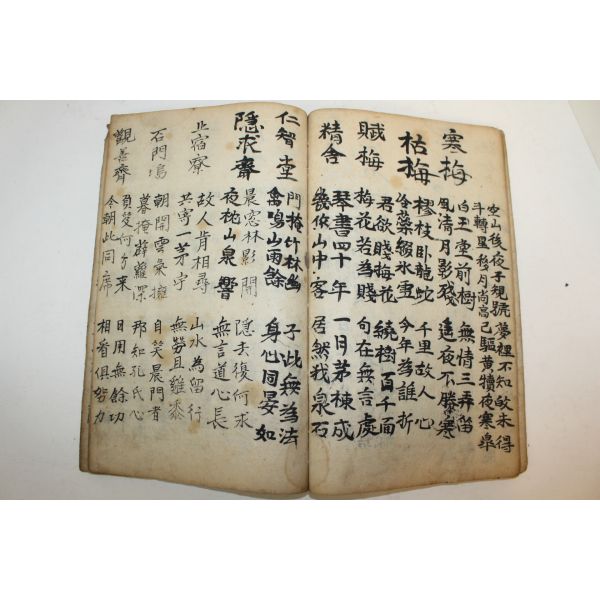 空山後夜子規號 夢裡不知故未得
斗轉星移月尚高 已驅黃犢夜寒皐
寒梅
白玉堂前樹 無情三弄笛
風清月影殘 遙夜不勝寒
枯梅
樛枝卧龍蛇 千里故人心
冷蘂綴氷雪 今年為誰折
賦梅
君欲賤梅花 繞樹百千面
梅花若為賤 句在無言處
精舍
琴書四十年 一日茅棟成
幾做山中客 居然我泉石
仁智堂
門掩竹林幽 子此無為法
禽鳴山雨餘 身心同晏如
隱求齋
晨窓林影開 隱去復何求
夜枕山泉響 無言道心長
止宿寮
故人肯相尋 山水為留行
共寄一茅宇 無勞具雞黍
石門塢
朝開雲氣擁 自笑晨門者
暮掩薜蘿深 那知孔氏心
觀善齋
負笈何方來 日用無餘功
今朝此同席 相看俱努力